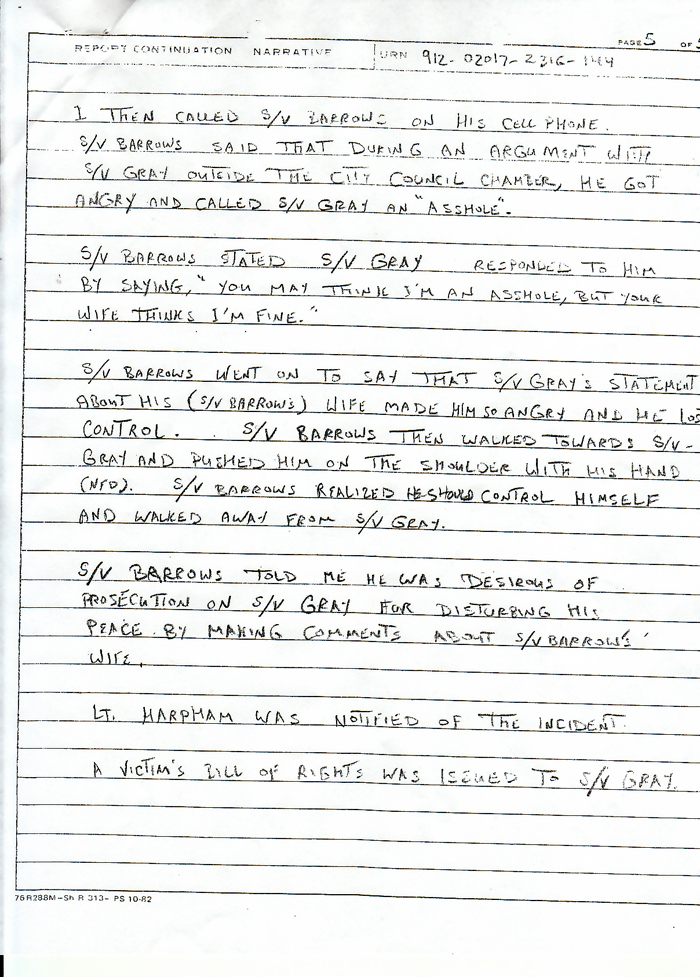 PAGE 5 OF 5
REPORT CONTINUATION NARRATIVE URN 912-02017-2316-144
I THEN CALLED S/V BARROWS ON HIS CELL PHONE.
S/V BARROWS SAID THAT DURING AN ARGUMENT WITH
S/V GRAY OUTSIDE THE CITY COUNCIL CHAMBER, HE GOT
ANGRY AND CALLED S/V GRAY AN "ASSHOLE".
S/V BARROWS STATED S/V GRAY RESPONDED TO HIM
BY SAYING, "YOU MAY THINK I'M AN ASSHOLE, BUT YOUR
WIFE THINKS I'M FINE."
S/V BARROWS WENT ON TO SAY THAT S/V GRAY'S STATEMENT
ABOUT HIS (S/V BARROWS) WIFE MADE HIM SO ANGRY AND HE LOS
CONTROL. S/V BARROWS THEN WALKED TOWARDS S/V-
GRAY AND PUSHED HIM ON THE SHOULDER WITH HIS HAND
(NFD). S/V BARROWS REALIZED HE SHOULD CONTROL HIMSELF
AND WALKED AWAY FROM S/V GRAY.
S/V BARROWS TOLD ME HE WAS DESIROUS OF
PROSECUTION ON S/V GRAY FOR DISTURBING HIS
PEACE BY MAKING COMMENTS ABOUT S/V BARROWS'
WIFE.
LT. HARPHAM WAS NOTIFIED OF THE INCIDENT.
A VICTIM'S BILL OF RIGHTS WAS ISSUED TO S/V GRAY.
76R288M-Sh R 313- PS 10-82